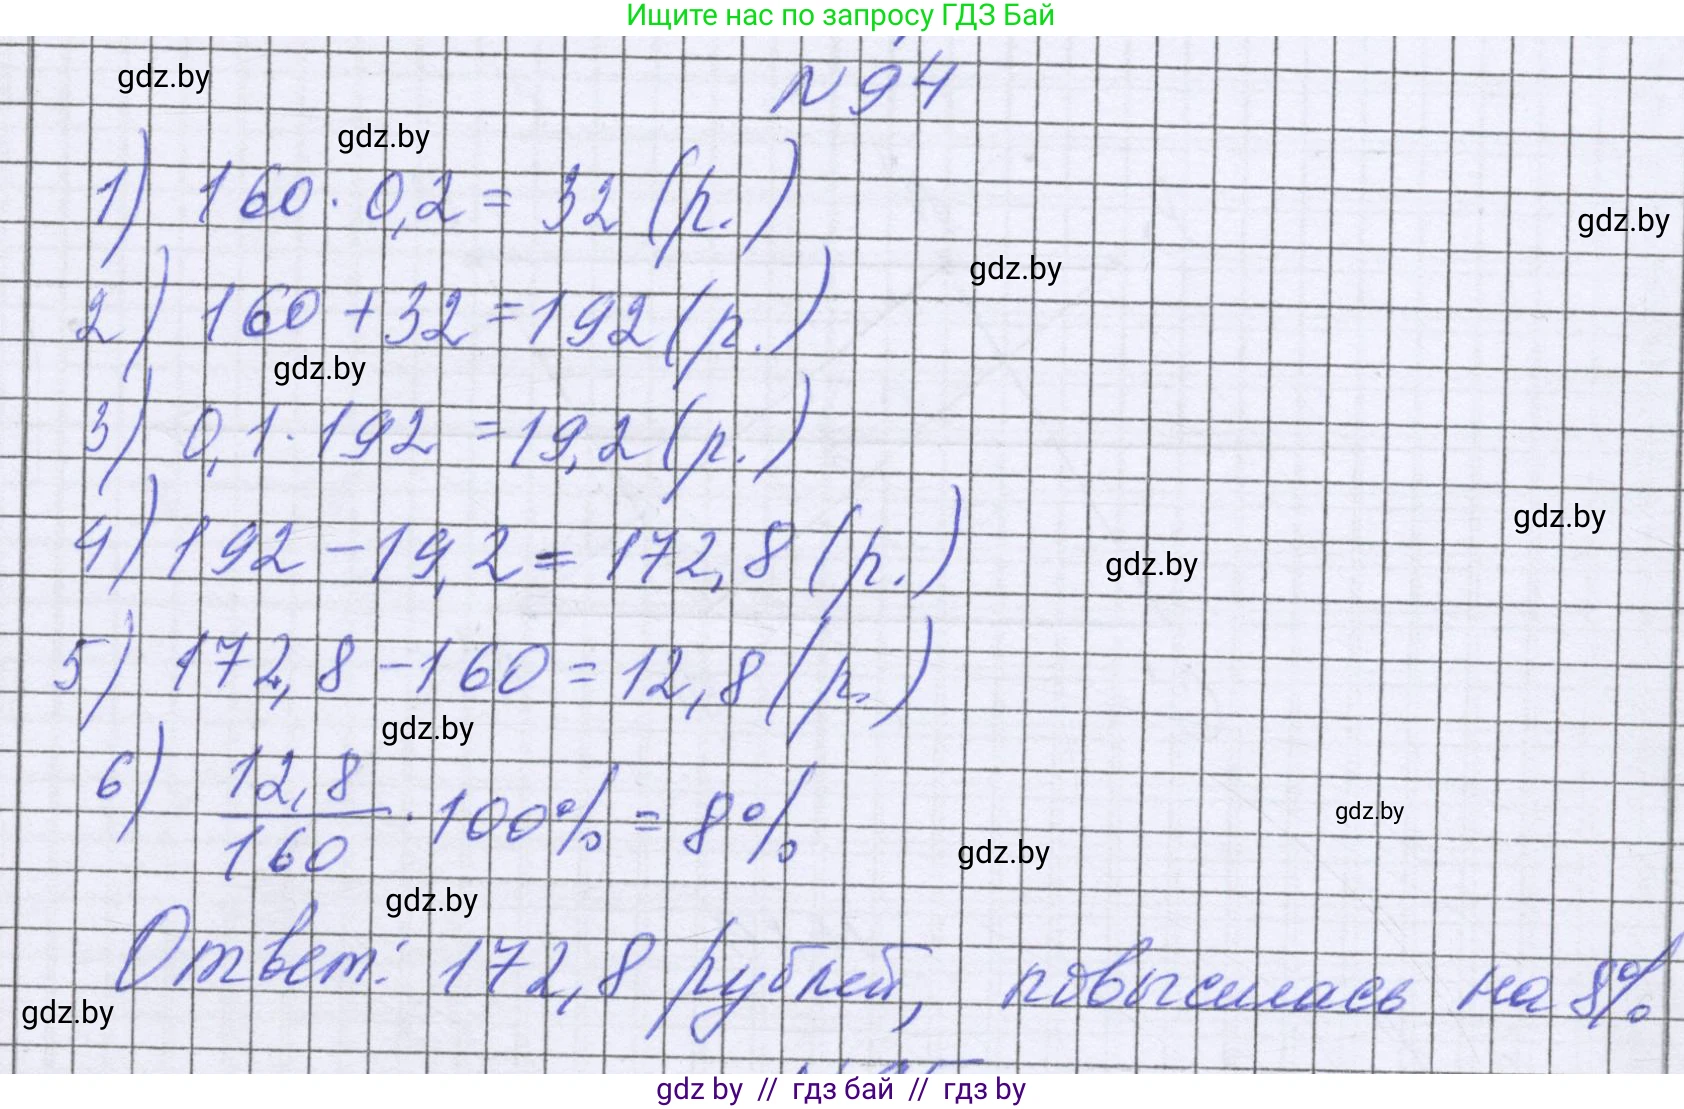 Ищите нас по запросу ГДЗ Бай
№ 94
gdz.by
gdz.by
1) 160 · 0,2 = 32 (р.)
gdz.by
gdz.by
2) 160 + 32 = 192 (р.)
gdz.by
3) 0,1 · 192 = 19,2 (р.)
gdz.by
4) 192 - 19,2 = 172,8 (р.)
gdz.by
5) 172,8 - 160 = 12,8 (р.)
gdz.by
6) 12,8/160 · 100% = 8%
gdz.by
gdz.by
gdz.by
Ответ: 172,8 рублей, повысилась на 8%
gdz.by
gdz by // гдз бай // гдз by